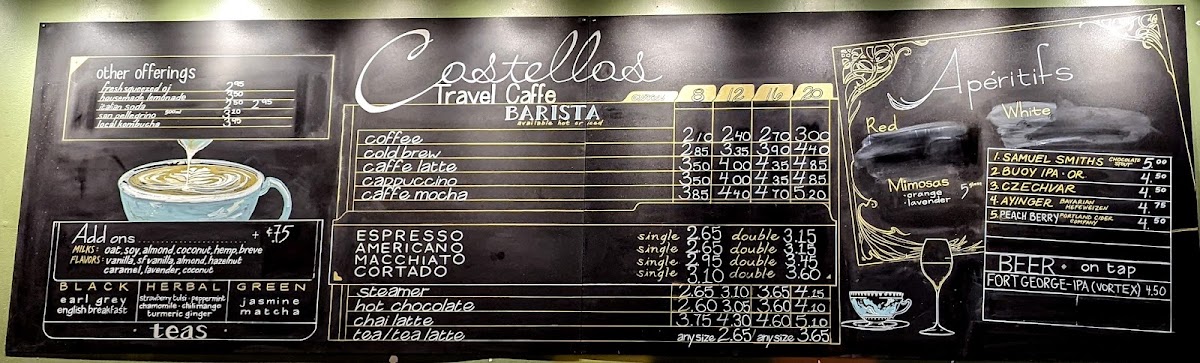 other offerings
fresh squeezed oj 2.95
housemade lemonade 2.50
italian soda 2.50 2.95
san pellegrino 500ml 3.20
local kombucha 3.95
Add ons + ¢.75
MILKS: oat, soy, almond, coconut, hemp, breve
FLAVORS: vanilla, sf vanilla, almond, hazelnut
caramel, lavender, coconut
BLACK HERBAL GREEN
earl grey
english breakfast
strawberry tulsi · peppermint
chamomile · chili mango
turmeric ginger
jasmine
matcha
· teas ·
Castellos
Travel Caffe
BARISTA
available hot or iced
8 12 16 20
coffee 2.10 2.40 2.70 3.00
cold brew 2.85 3.35 3.90 4.40
caffe latte 3.50 4.00 4.35 4.85
cappuccino 3.50 4.00 4.35 4.85
caffe mocha 3.85 4.40 4.70 5.20
ESPRESSO single 2.65 double 3.15
AMERICANO single 2.65 double 3.15
MACCHIATO single 2.95 double 3.45
CORTADO single 3.10 double 3.60
steamer 2.65 3.10 3.65 4.15
hot chocolate 2.60 3.05 3.60 4.10
chai latte 3.75 4.30 4.60 5.10
tea/tea latte any size 2.65/any size 3.65
Apéritifs
Red
White
Mimosas
· orange
· lavender
1. SAMUEL SMITHS CHOCOLATE STOUT 5.00
2 BUOY IPA · OR. 4.50
3. CZECHVAR 4.50
4. AYINGER BAVARIAN HEFEWEIZEN 4.75
5. PEACH BERRY PORTLAND CIDER COMPANY 4.50
BEER · on tap
FORT GEORGE-IPA (VORTEX) 4.50